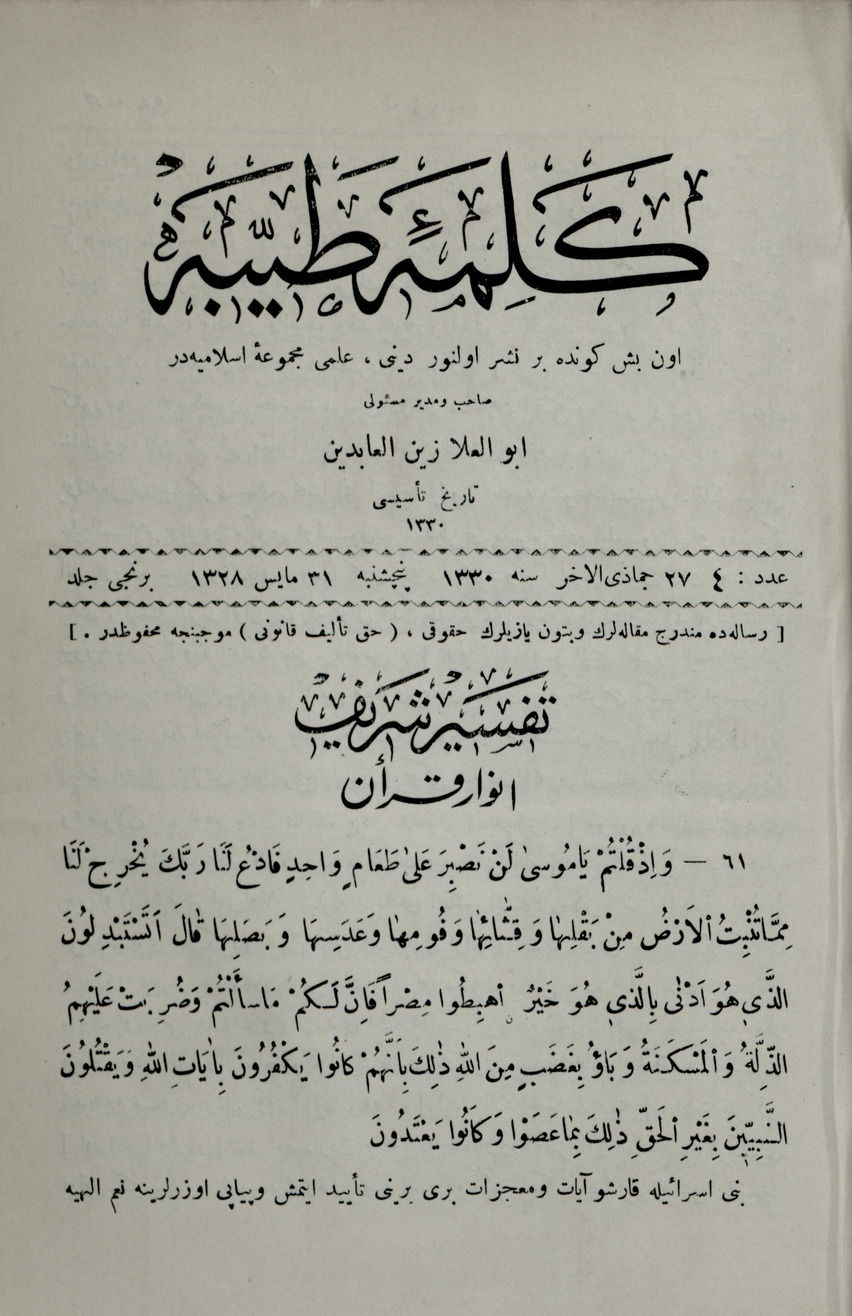 كَلِمَۀ طَيِّبَه
اون بش كونده بر نشر اولنور دينى ، علمى مجموعۀ اسلاميه‌در
صاحب ومدير مسئولى
ابو العلا زين العابدين
تاريخ تأسيسى
١٣٣٠
عدد : ٤   ٢٧ جماذى‌الاخر سنه ١٣٣٠   پنچشنبه   ٣١ مايس ١٣٢٨   برنجى جلد
[ رساله‌ده مندرج مقاله‌لرك وبتون يازيلرك حقوقى ، ( حق تأليف قانونى ) موجبنجه محفوظدر . ]
تفسير شريف
انوار قرأن
٦١ — وَاِذْ قُلْتُمْ يَامُوسٰى لَنْ نَصْبِرَ عَلٰى طَعَامٍ وَاحِدٍ فَادْعُ لَنَا رَبَّكَ يُخْرِجْ لَنَا
مِمَّا تُنْبِتُ اْلاَرْضُ مِنْ بَقْلِهَا وَقِثَّائِهَا وَفُومِهَا وَعَدَسِهَا وَبَصَلِهَا قَالَ اَتَسْتَبْدِلُونَ
الَّذٖى هُوَ اَدْنٰى بِالَّذٖى هُوَ خَيْرٌ اِهْبِطُوا مِصْراً فَاِنَّ لَكُمْ مَا سَأَلْتُمْ وَضُرِبَتْ عَلَيْهِمُ
الذِّلَّةُ وَاْلمَسْكَنَةُ وَبَاؤُ بِغَضَبٍ مِنَ اللهِ ذٰلِكَ بِاَنَّهُمْ كَانُوا يَكْفُرُونَ بِاٰيَاتِ اللهِ وَيَقْتُلُونَ
النَّبِيّٖنَ بِغَيْرِ اْلحَقِّ ذٰلِكَ بِمَا عَصَوْا وَكَانُوا يَعْتَدُونَ
بنى اسرائيله قارشو آيات ومعجزات برى برينى تأييد ايتمش وپياپى اوزرلرينه نعم الهيه